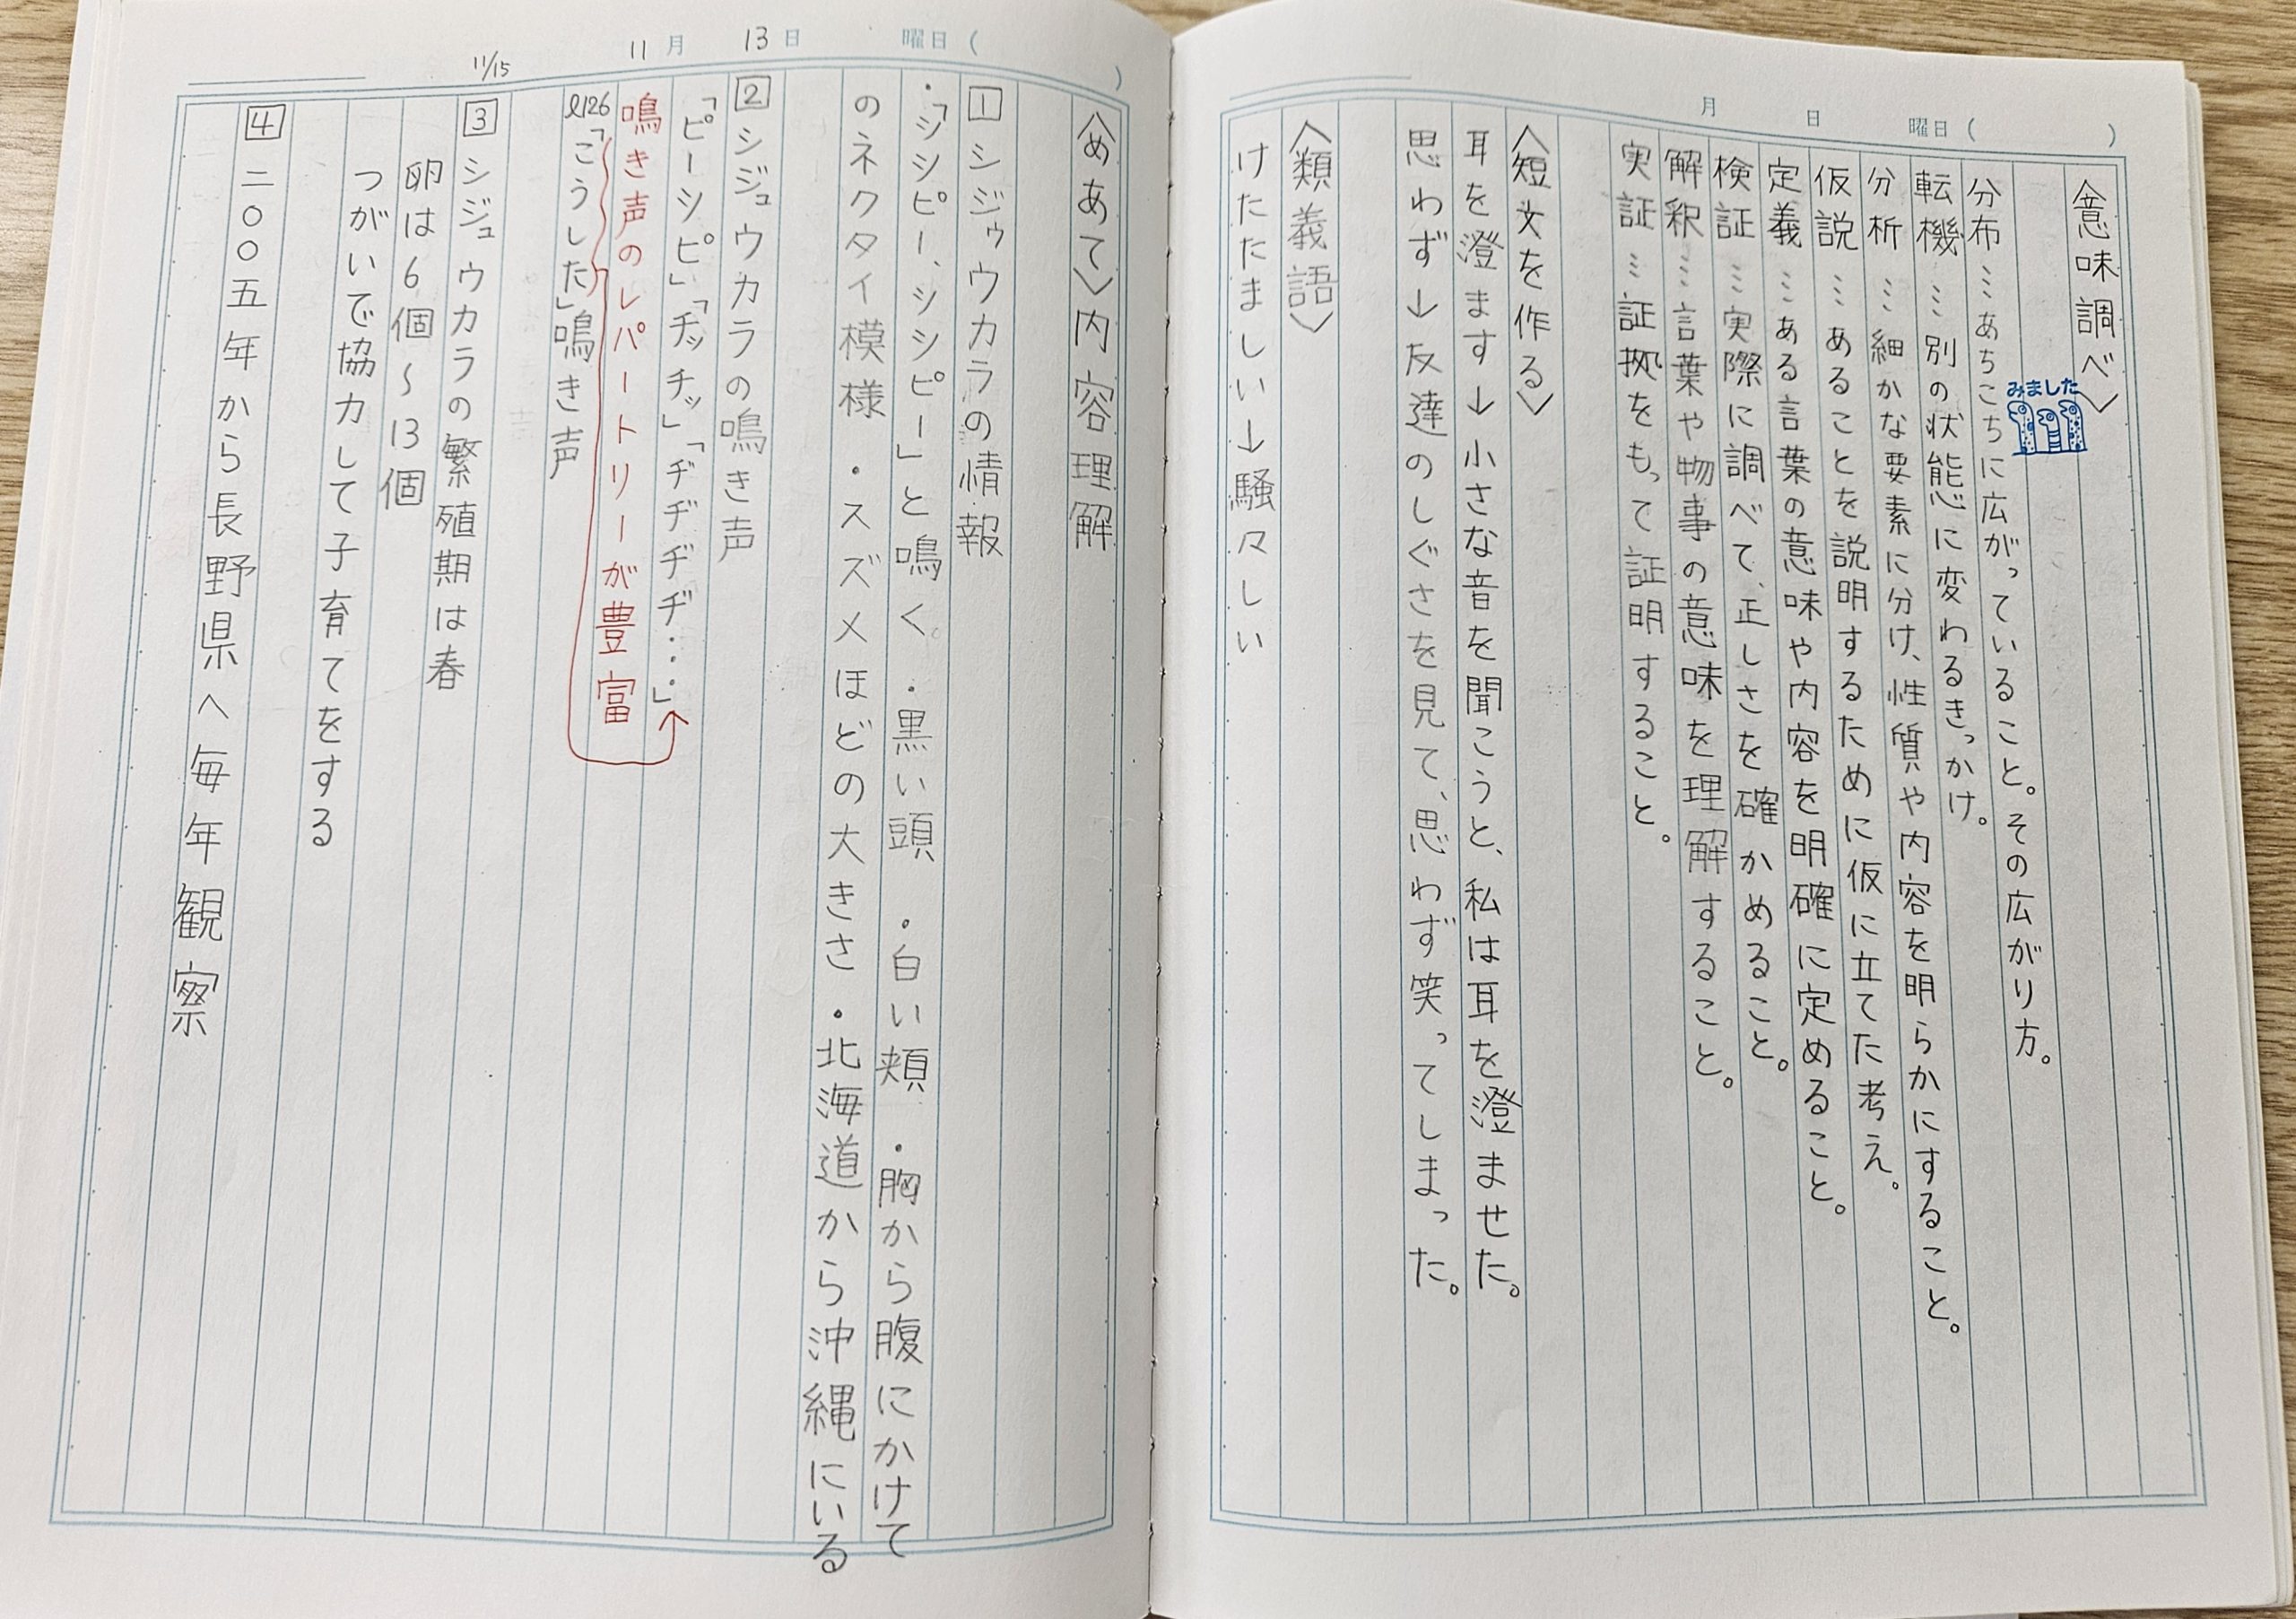 月 日 曜日( )
〈意味調べ〉
みました
分布…あちこちに広がっていること。その広がり方。
転機…別の状態に変わるきっかけ。
分析…細かな要素に分け、性質や内容を明らかにすること。
仮説…あることを説明するために仮に立てた考え。
定義…ある言葉の意味や内容を明確に定めること。
検証…実際に調べて、正しさを確かめること。
解釈…言葉や物事の意味を理解すること。
実証…証拠をもって証明すること。
〈短文を作る〉
耳を澄ます→小さな音を聞こうと、私は耳を澄ませた。
思わず→友達のしぐさを見て、思わず笑ってしまった。
〈類義語〉
けたたましい→騒々しい
11月 13日 曜日( )
〈めあて〉内容理解
1 シジュウカラの情報
・「シシピー、シシピー」と鳴く。・黒い頭 ・白い頬 ・胸から腹にかけて
のネクタイ模様 ・スズメほどの大きさ ・北海道から沖縄にいる
2 シジュウカラの鳴き声
「ピーシピ」「チッチッ」「ヂヂヂヂ・・・」
鳴き声のレパートリーが豊富
l126「こうした」鳴き声
11/15
3 シジュウカラの繁殖期は春
卵は6個〜13個
つがいで協力して子育てをする
4 二〇〇五年から長野県へ毎年観察